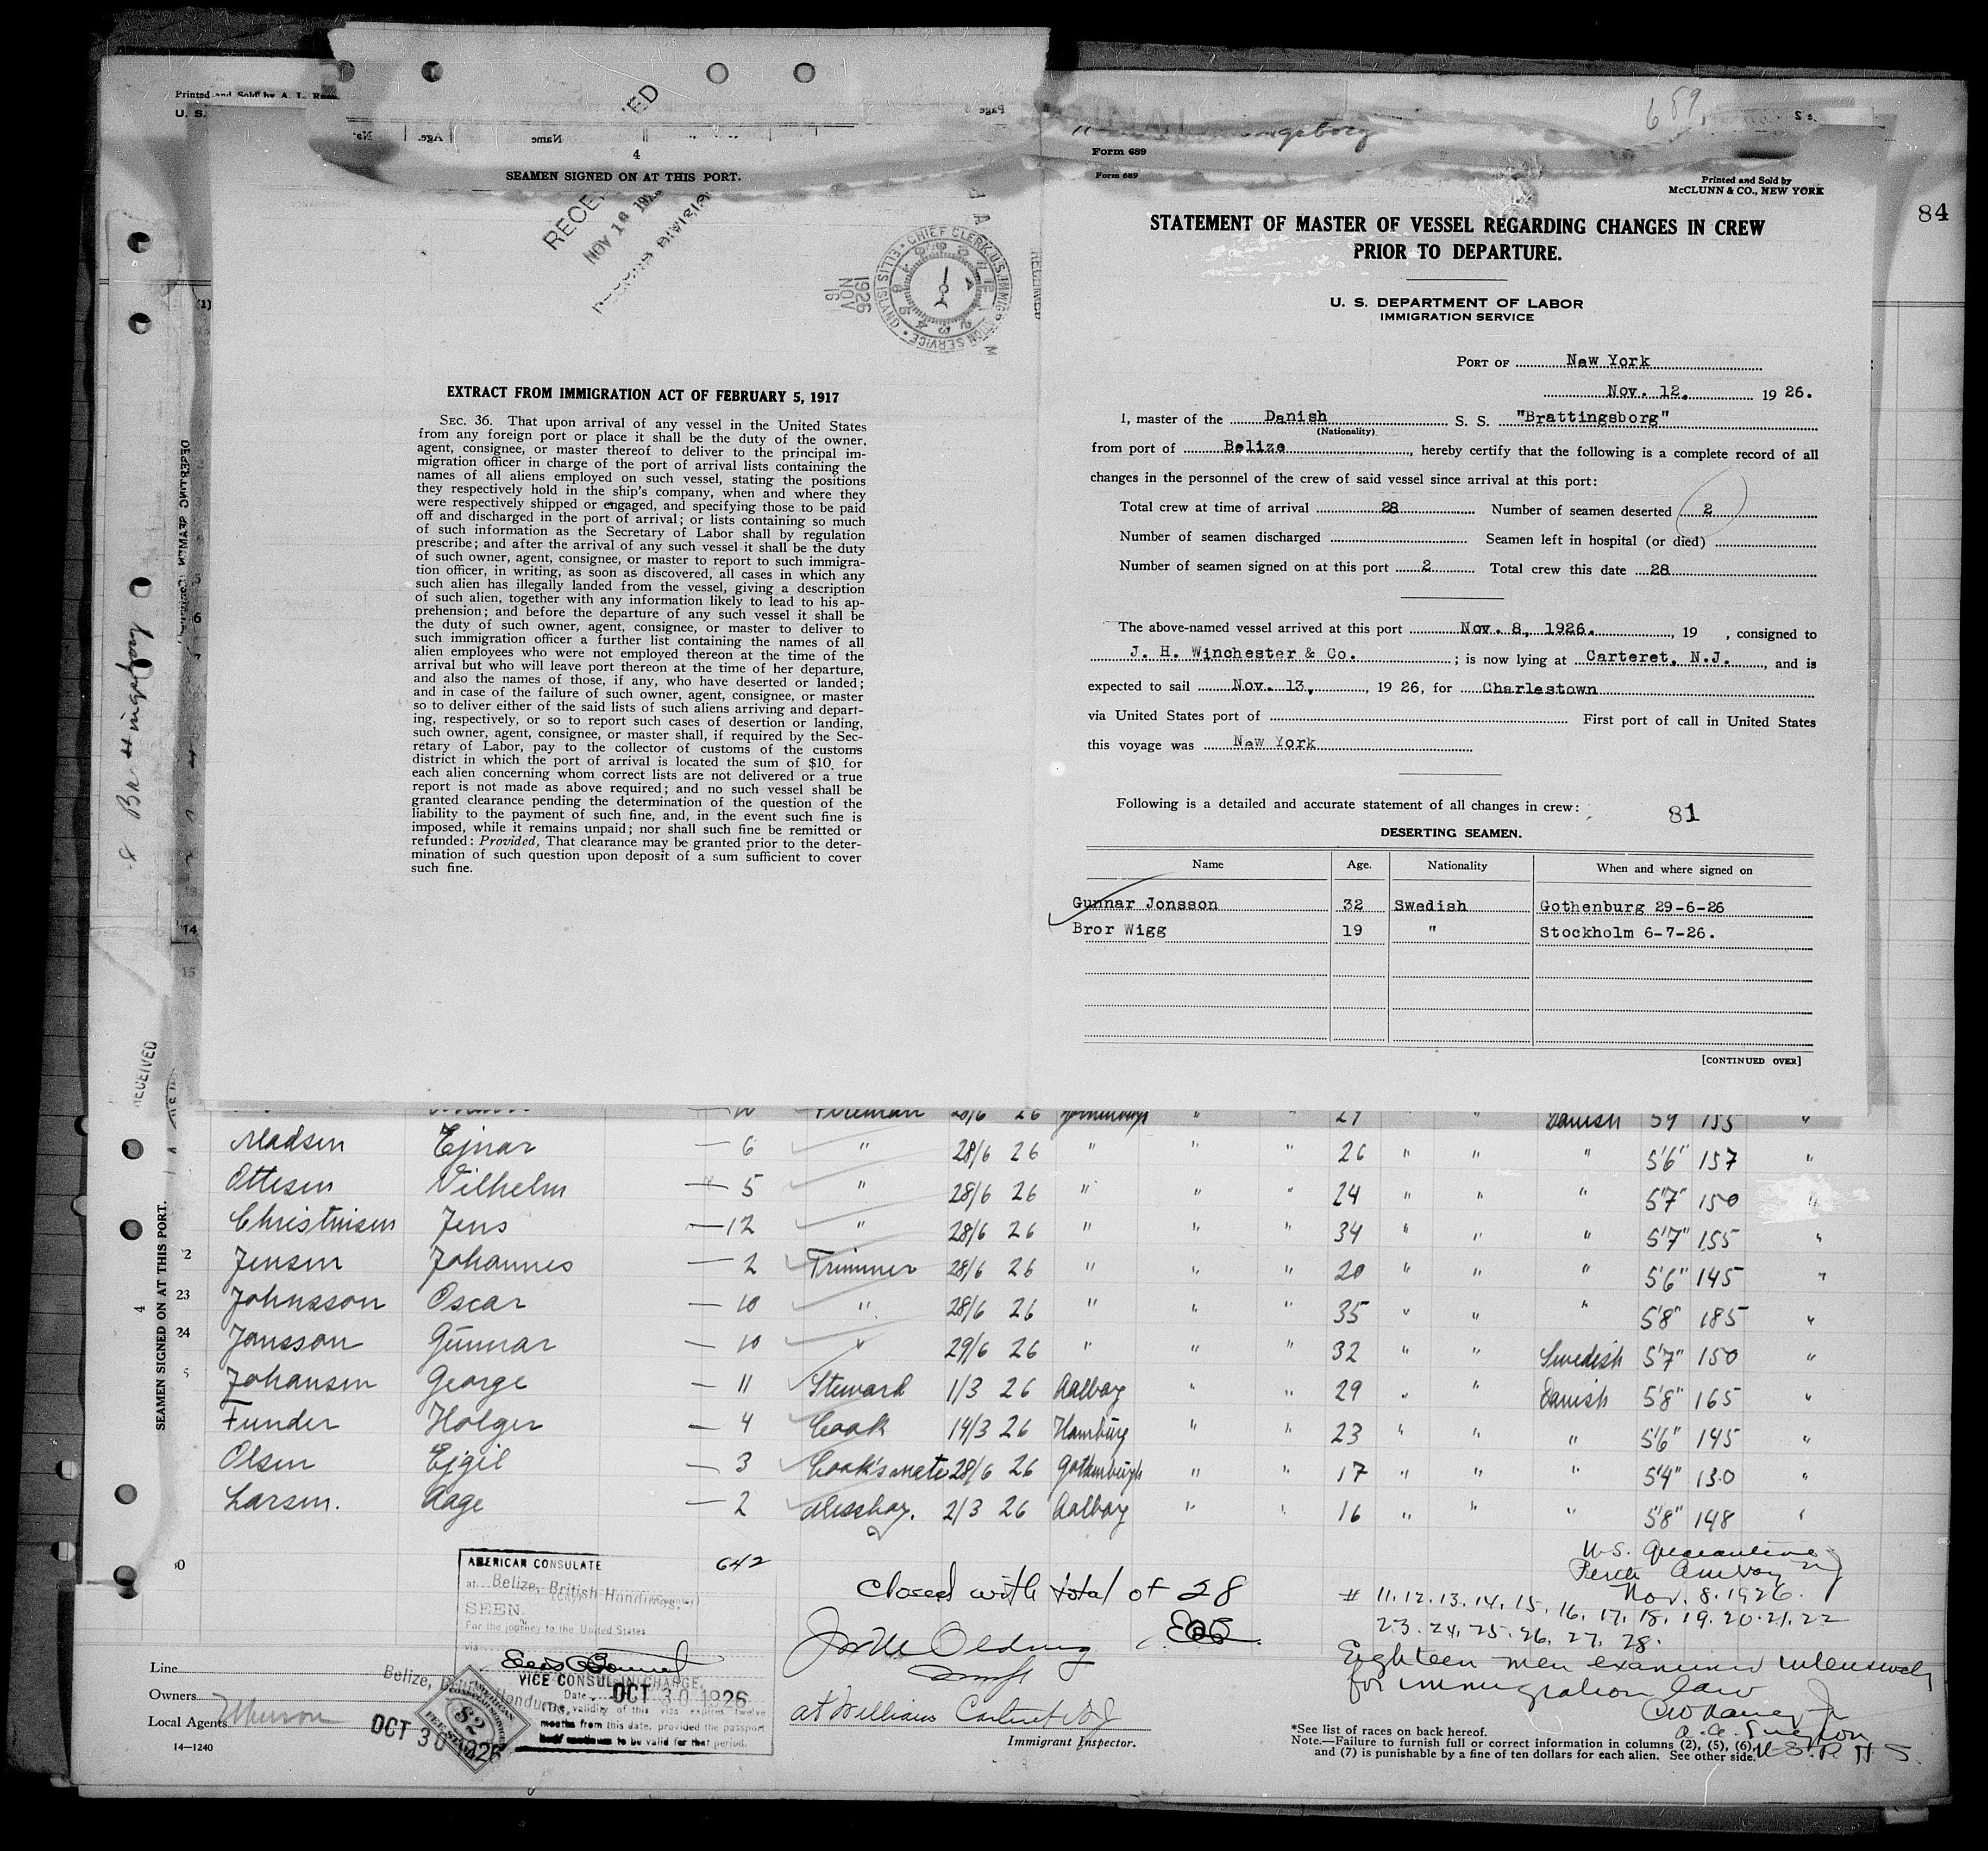 Printed and Sold by A. L.
U. S.
Page
Name
Age.
No.
4
SEAMEN SIGNED ON AT THIS PORT.
NOV 16
CHIEF CLERK, U.S. IMMIGRATION SERVICE • ELLIS ISLAND •
1926
NOV
16
EXTRACT FROM IMMIGRATION ACT OF FEBRUARY 5, 1917
SEC. 36. That upon arrival of any vessel in the United States
from any foreign port or place it shall be the duty of the owner,
agent, consignee, or master thereof to deliver to the principal im-
migration officer in charge of the port of arrival lists containing the
names of all aliens employed on such vessel, stating the positions
they respectively hold in the ship's company, when and where they
were respectively shipped or engaged, and specifying those to be paid
off and discharged in the port of arrival; or lists containing so much
of such information as the Secretary of Labor shall by regulation
prescribe; and after the arrival of any such vessel it shall be the duty
of such owner, agent, consignee, or master to report to such immigra-
tion officer, in writing, as soon as discovered, all cases in which any
such alien has illegally landed from the vessel, giving a description
of such alien, together with any information likely to lead to his ap-
prehension; and before the departure of any such vessel it shall be
the duty of such owner, agent, consignee, or master to deliver to
such immigration officer a further list containing the names of all
alien employees who were not employed thereon at the time of the
arrival but who will leave port thereon at the time of her departure,
and also the names of those, if any, who have deserted or landed;
and in case of the failure of such owner, agent, consignee, or master
so to deliver either of the said lists of such aliens arriving and depart-
ing, respectively, or so to report such cases of desertion or landing,
such owner, agent, consignee, or master shall, if required by the Sec-
retary of Labor, pay to the collector of customs of the customs
district in which the port of arrival is located the sum of $10 for
each alien concerning whom correct lists are not delivered or a true
report is not made as above required; and no such vessel shall be
granted clearance pending the determination of the question of the
liability to the payment of such fine, and, in the event such fine is
imposed, while it remains unpaid; nor shall such fine be remitted or
refunded: Provided, That clearance may be granted prior to the deter-
mination of such question upon deposit of a sum sufficient to cover
such fine.
689
Form 689
Form 689
Printed and Sold by
McCLUNN & CO., NEW YORK
84
STATEMENT OF MASTER OF VESSEL REGARDING CHANGES IN CREW
PRIOR TO DEPARTURE.
U. S. DEPARTMENT OF LABOR
IMMIGRATION SERVICE
PORT OF New York
Nov. 12, 19 26.
I, master of the Danish S. S. "Brattingsborg"
(Nationality)
from port of Belize, hereby certify that the following is a complete record of all
changes in the personnel of the crew of said vessel since arrival at this port:
Total crew at time of arrival 28 Number of seamen deserted 2
Number of seamen discharged Seamen left in hospital (or died)
Number of seamen signed on at this port 2 Total crew this date 28
The above-named vessel arrived at this port Nov. 8, 1926. , 19 , consigned to
J. H. Winchester & Co. ; is now lying at Carteret, N.J. , and is
expected to sail Nov. 13, , 19 26, for Charlestown
via United States port of First port of call in United States
this voyage was New York
Following is a detailed and accurate statement of all changes in crew: 81
DESERTING SEAMEN.
Name Age. Nationality When and where signed on
Gunnar Jonsson 32 Swedish Gothenburg 29-6-26
Bror Wigg 19 " Stockholm 6-7-26.
[CONTINUED OVER]
Brattingsborg
RECEIVED
4
SEAMEN SIGNED ON AT THIS PORT.
DESERTING SEAMEN
14
15
Fireman 28/6 26 " " 27 " " Danish 155 "
Madsen Ejnar — 6 " 28/6 26 " " " 26 " " " 5'6" 157 "
Ottesen Vilhelm — 5 " 28/6 26 " " " 24 " " " 5'7" 150 "
Christensen Jens — 12 " 28/6 26 " " " 34 " " " 5'7" 155 "
2 Jensen Johannes — 2 Trimmer 28/6 26 " " " 20 " " " 5'6" 145 "
23 Johnsson Oscar — 10 " 28/6 26 " " " 35 " " " 5'8" 185 "
24 Jonsson Gunnar — 10 " 29/6 26 " " " 32 " " Swedish 5'7" 150 "
5 Johansen George — 11 Steward 1/3 26 Aalborg " " 29 " " Danish 5'8" 165 "
Funder Holger — 4 Cook 14/3 26 Hamburg " " 23 " " " 5'6" 145 "
Olsen Ejgil — 3 Cook's mate 28/6 26 Gothenburgh " " 17 " " " 5'4" 130 "
Larsen. Aage — 2 Messboy. 2/3 26 Aalborg " " 16 " " " 5'8" 148 "
30
642
AMERICAN CONSULATE
at Belize, British Honduras.
SEEN
For the journey to the United States
via
VICE CONSUL IN CHARGE,
Date OCT 30 1926
The validity of this visa expires twelve
months from this date, provided the passport
continues to be valid for that period.
Belize, British Honduras,
AMERICAN CONSULAR SERVICE
$2
FEE STAMP
OCT 30 1926
Closed with total of 28
at Williams Carteret NJ
Immigrant Inspector.
U.S. Quarantine
Perth Amboy NJ
Nov. 8. 1926.
# 11. 12. 13. 14. 15. 16. 17. 18. 19. 20. 21. 22
23. 24. 25. 26. 27. 28.
Eighteen men examined intensively
for immigration law
U.S.P.H.S.
Line
Owners
Local Agents
14—1240
*See list of races on back hereof.
Note.—Failure to furnish full or correct information in columns (2), (5), (6),
and (7) is punishable by a fine of ten dollars for each alien. See other side.